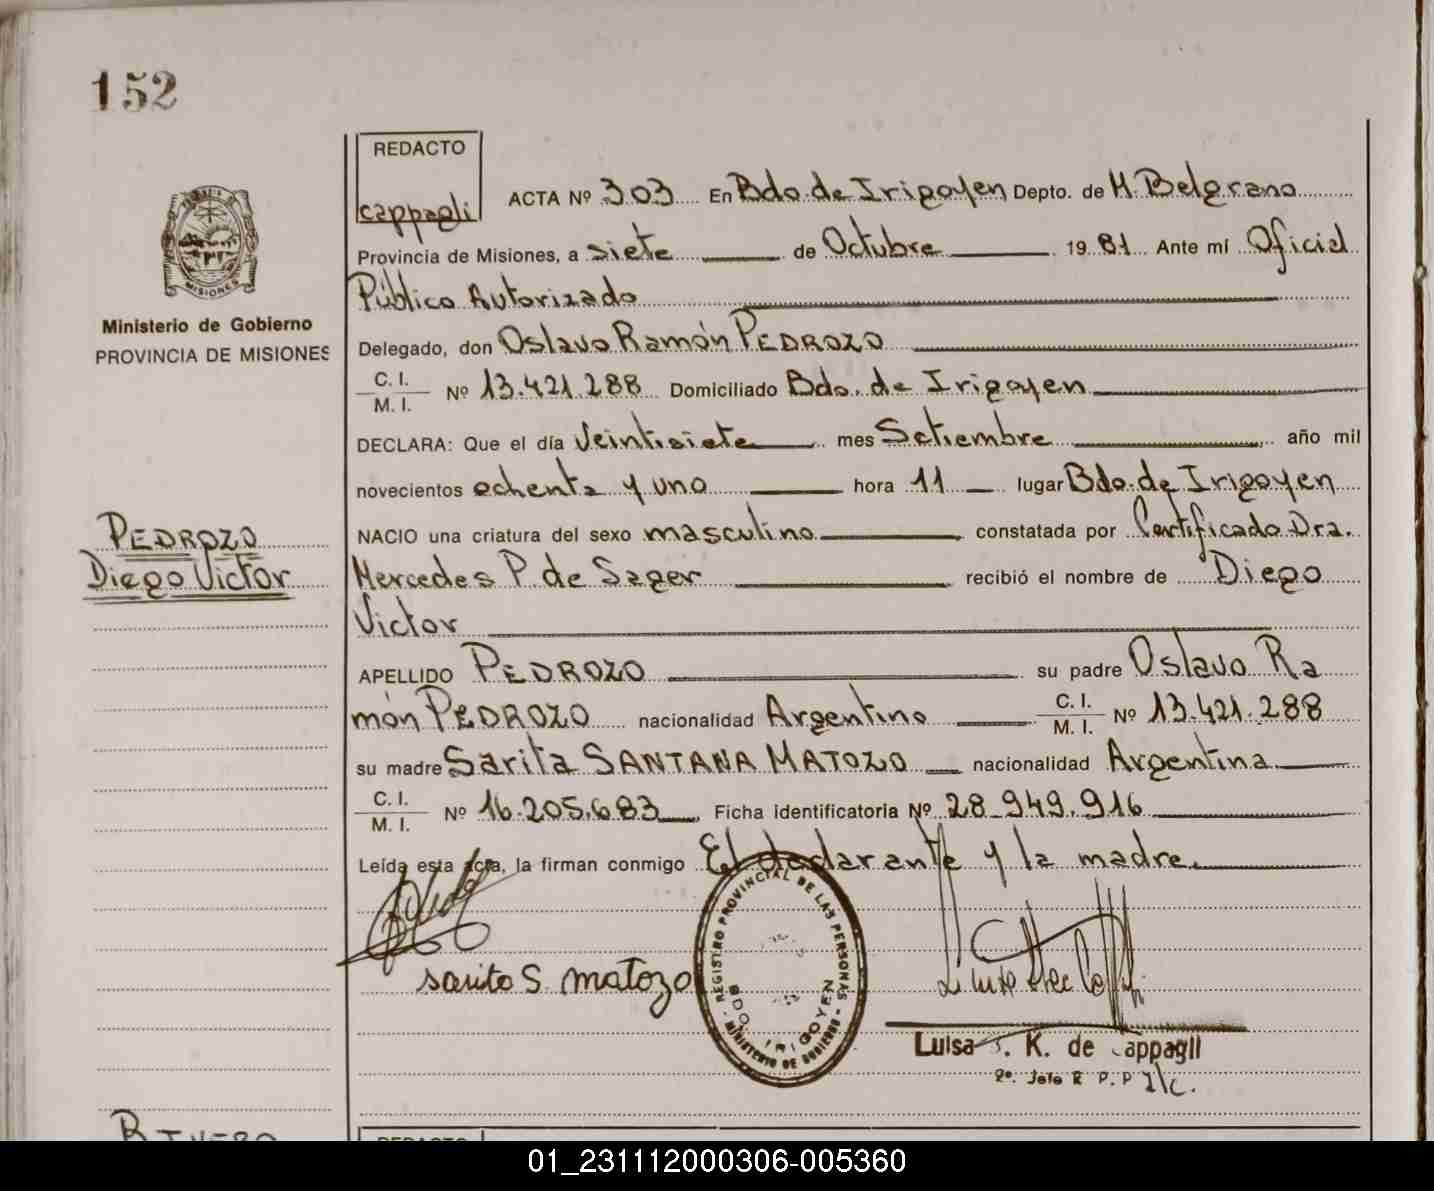 152
REDACTO
cappagli
ACTA Nº 303 En Bdo. de Irigoyen Depto. de M. Belgrano
Provincia de Misiones, a siete de Octubre 1981 Ante mí Oficial
Público Autorizado
MISIONES
Ministerio de Gobierno
PROVINCIA DE MISIONES
Delegado, don Oslavo Ramón PEDROZO
C. I.
M. I. Nº 13.421.288 Domiciliado Bdo. de Irigoyen
DECLARA: Que el día Veintisiete mes Setiembre año mil
novecientos ochenta y uno hora 11 lugar Bdo. de Irigoyen
PEDROZO
Diego Victor
NACIO una criatura del sexo masculino constatada por Certificado Dra.
Mercedes P. de Sager recibió el nombre de Diego
Victor
APELLIDO PEDROZO su padre Oslavo Ra
món PEDROZO nacionalidad Argentino C. I. M. I. Nº 13.421.288
su madre Sarita SANTANA MATOZO nacionalidad Argentina
C. I.
M. I. Nº 16.205.683 Ficha identificatoria Nº 28.949.916
Leída esta acta, la firman conmigo El declarante y la madre.
sarita S. matozo
REGISTRO PROVINCIAL DE LAS PERSONAS
BDO. IRIGOYEN
- MINISTERIO DE GOBIERNO -
Luisa K. de Cappagli
2º. Jefe R. P. P.
REDACTO
01_231112000306-005360